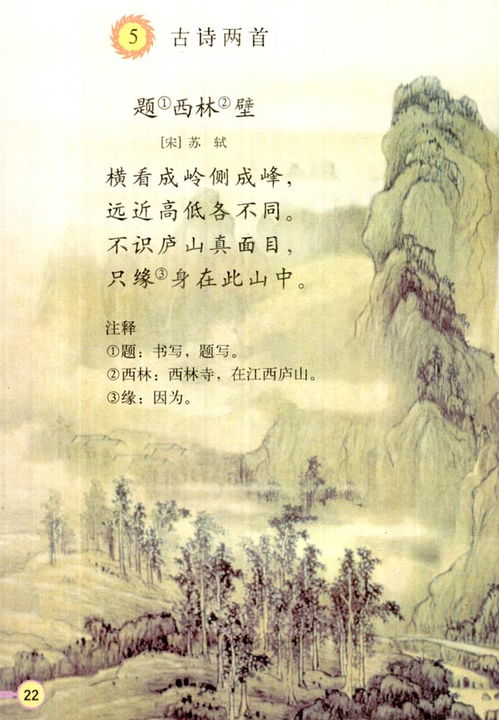 5 古诗两首
题①西林②壁
[宋] 苏 轼
横看成岭侧成峰，
远近高低各不同。
不识庐山真面目，
只缘③身在此山中。
注释
①题：书写，题写。
②西林：西林寺，在江西庐山。
③缘：因为。
22